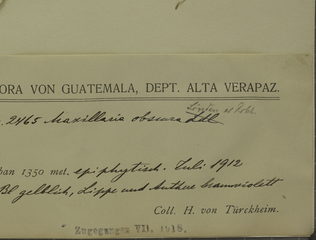 ORA VON GUATEMALA, DEPT. ALTA VERAPAZ.
Linden et Rchb.
. 2465 Maxillaria obscura Ldl
ban 1350 met. epiphytisch. Juli 1912
Bl gelblich, Lippe und Anthere braunviolett
Coll. H. von Türckheim.
Zugegangen VII. 1918.